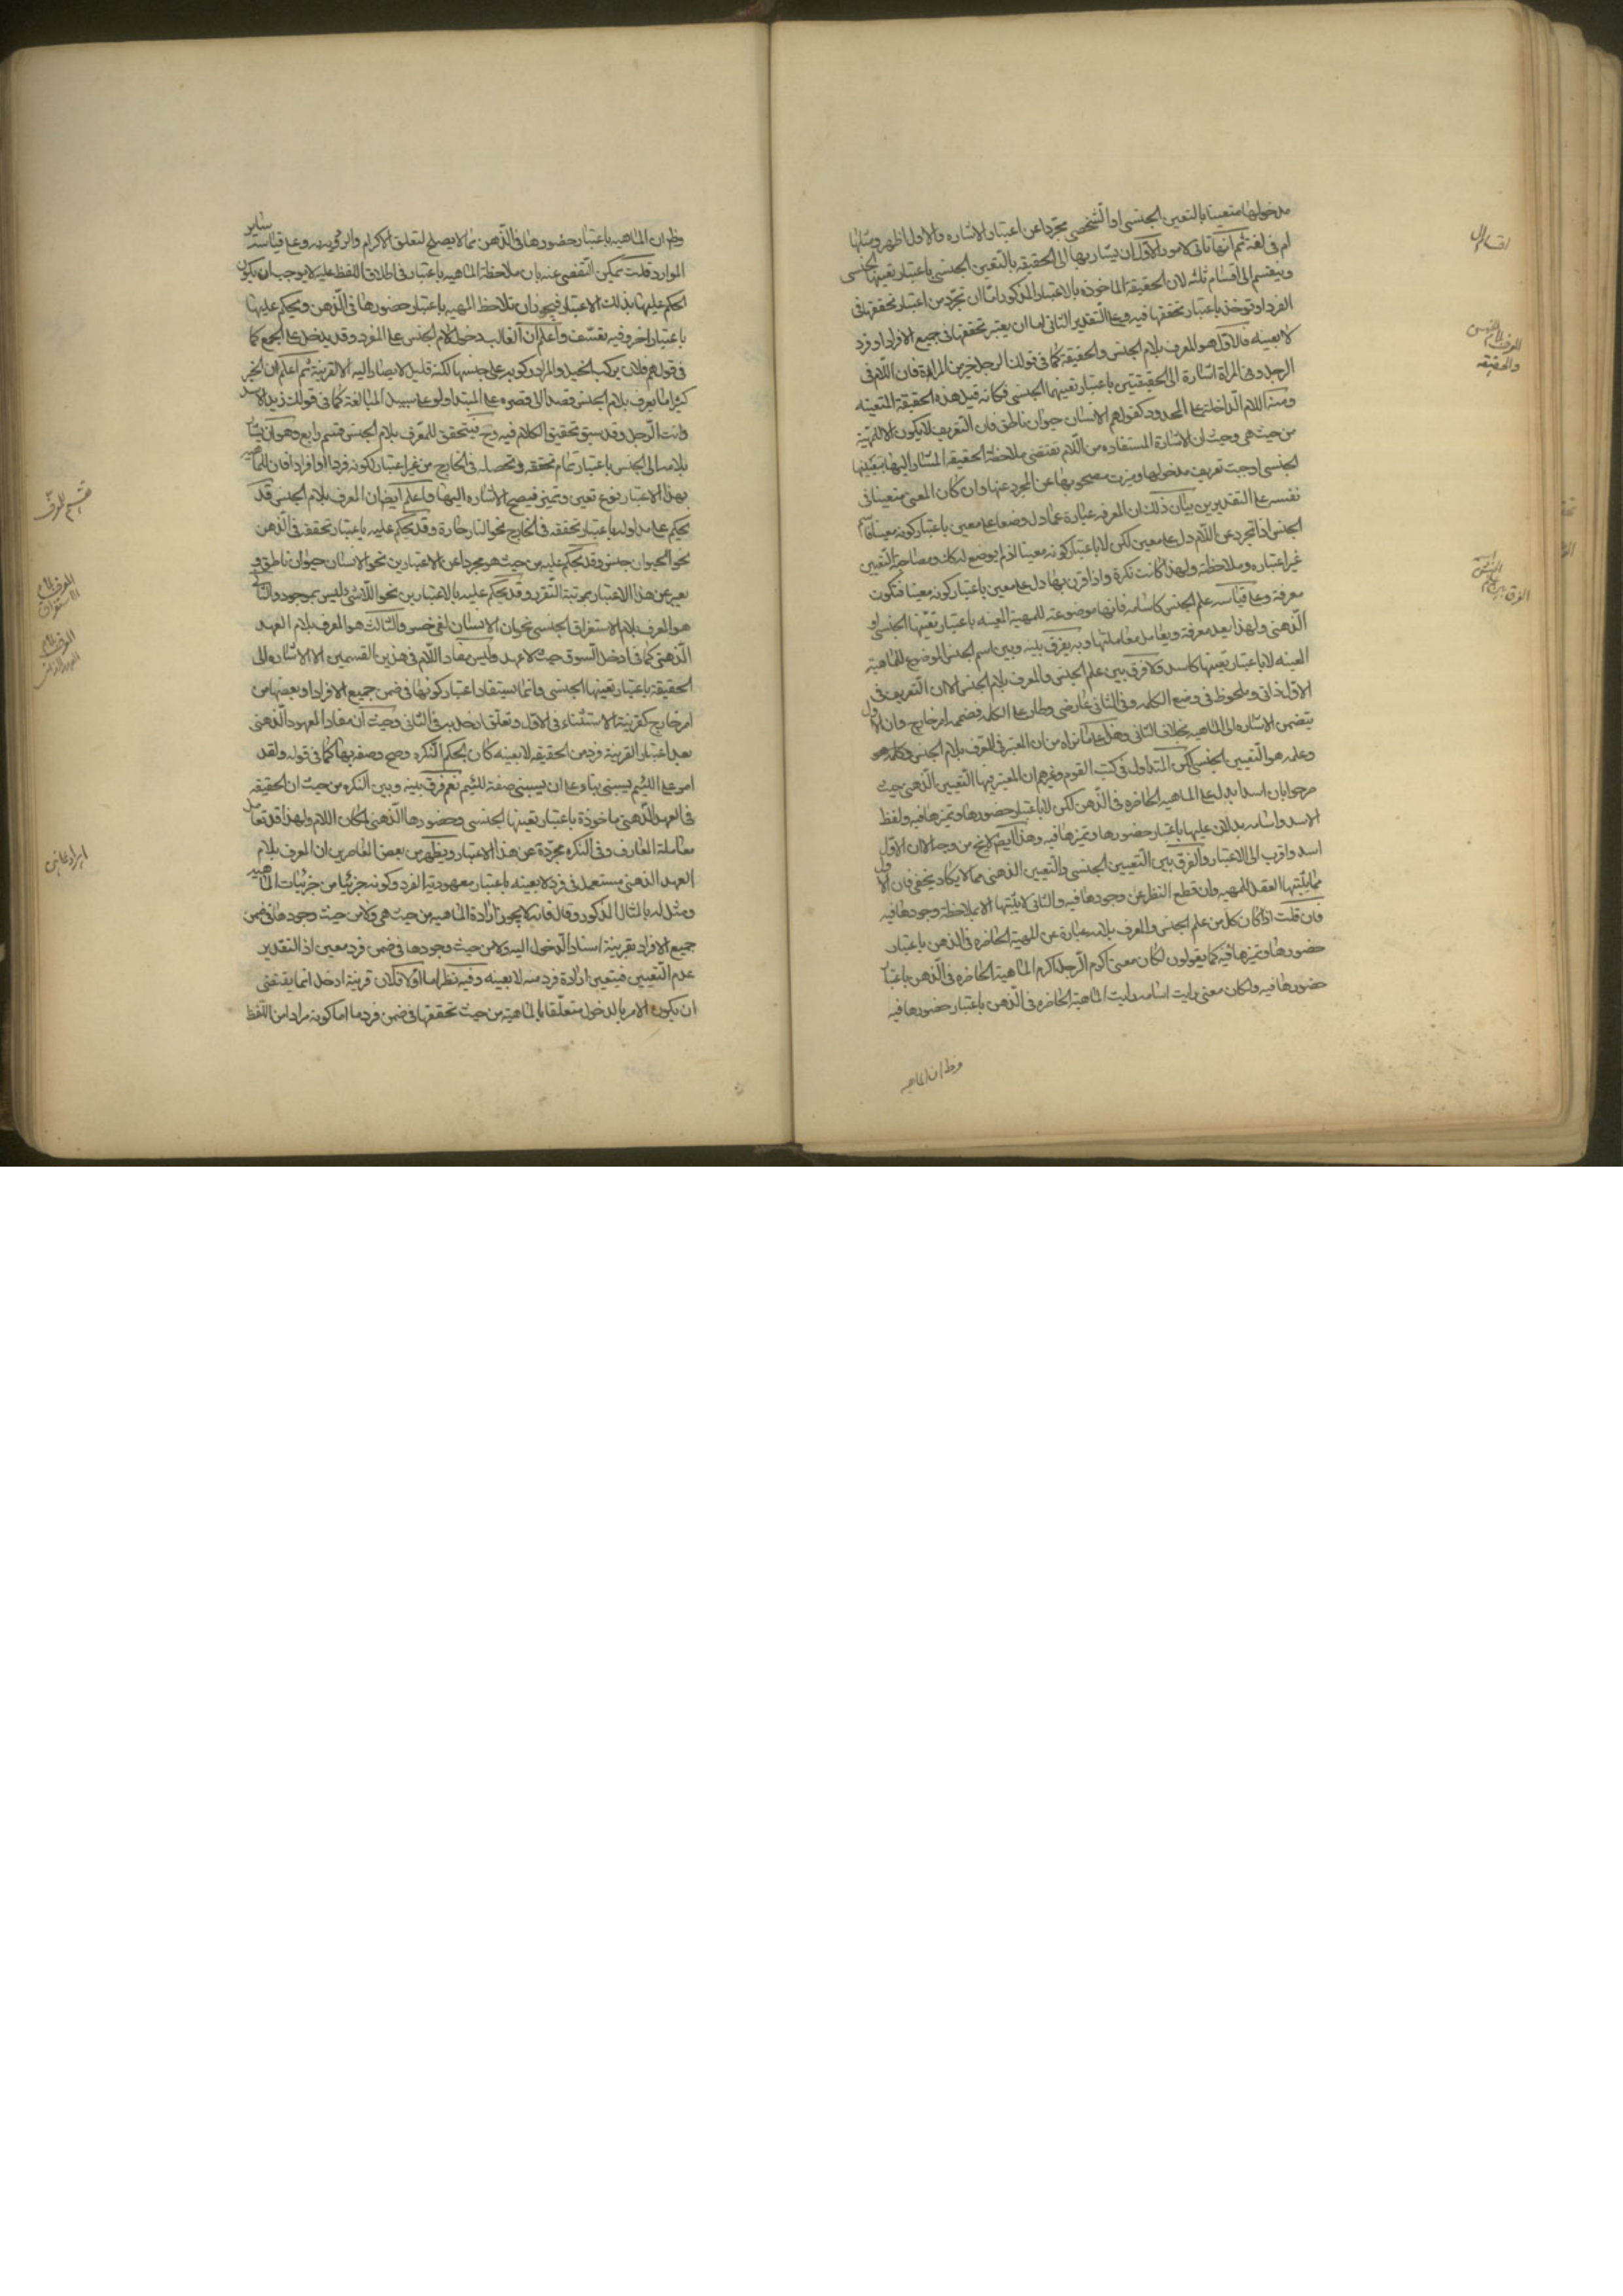 مدخولها متعينا بالتعين الجنسي او الشخصي مجردا عن اعتبار الاشاره والاول اظهر ومثلها
ام في لغة ثم انها تاتي لامور الاول ان يشار بها الى الحقيقه بالتعين الجنسي باعتبار تعينها الجنسي
وينقسم الى اقسام ثلثه لان الحقيقة الماخوذه بالاعتبار المذكور اما ان تجرد من اعتبار تحققها في
الفرد او توخذ باعتبار تحققها فيه وعلى التقدير الثاني اما ان يعتبر تحققها في جميع الافراد او فرد
لا بعينه فالاول هو المعرف بلام الجنس والحقيقة كما في قولك الرجل خير من المراة فان اللام في
الرجل وفي المراة اشارة الى الحقيقتين باعتبار تعينهما الجنسي فكانه قيل هذه الحقيقة المتعينه
ومنه اللام الداخلة على المحدود كقولهم الانسان حيوان ناطق فان التعريف لا يكون الا للمهية
من حيث هي وحيث ان الاشارة المستفاده من اللام تقتضي ملاحظة الحقيقه المشار اليها بتعينها
الجنسي اوجبت تعريف مدخولها وميزت مصحوبها عن المجرد عنها وان كان المعنى متعينا في
نفسه على التقديرين بيان ذلك ان المعرفه عبارة عما دل وضعا على معين باعتبار كونه معينا فاسم
الجنس اذا تجرد عن اللام دل على معين لكن لا باعتبار كونه معينا اذ لم يوضع له كك ومصاحبة التعيين
غير اعتباره وملاحظته ولهذا كانت نكرة واذا قرن بها دل على معين باعتبار كونه معينا فتكون
معرفة وعلى قياسه علم الجنس كاسامه فانها موضوعة للمهية المعينه باعتبار تعينها الجنسي او
الذهني ولهذا يعد معرفة ويعامل معاملتها وبه يفرق بينه وبين اسم الجنس الموضوع للماهية
المعينه لا باعتبار تعينها كاسد ولا فرق بين علم الجنس والمعرف بلام الجنس الا ان التعريف في
الاول ذاتي وملحوظ في وضع الكلمه وفي الثاني عارضي وطار على الكلمه فضميمه امر خارج وان الاول
يتضمن الاشاره الى الماهيه بخلاف الثاني وهذا على ما نراه من ان المعتبر في المعرف بلام الجنس وكلمه هو
وعلمه هو التعيين الجنسي لكن المتداول في كتب القوم وغيرهم ان المعتبر فيها التعيين الذهني حيث
صرحوا بان اسدا يدل على الماهيه الحاضره في الذهن لكن لا باعتبار حضورها وتميزها فيه ولفظ
الاسد واسامه يدلان عليها باعتبار حضورها وتميزها فيه وهذا ايضا لا يخ من وجه الا ان الاول
اسد واقرب الى الاعتبار والفرق بين التعيين الجنسي والتعيين الذهني مما لا يكاد يخفى فان الاول
مما يثبتها العقل للمهيه وان قطع النظر عن وجودها فيه والثاني لا يثبتها الا بملاحظة وجودها فيه
فان قلت اذا كان كل من علم الجنس والمعرف بلامه عبارة عن المهية الحاضره في الذهن باعتبار
حضورها وتميزها فيه كما يقولون لكان معنى اكرم الرجل اكرم الماهية الحاضره في الذهن باعتبار
حضورها فيه ولكان معنى رايت اسامه رايت الماهية الحاضره في الذهن باعتبار حضورها فيه
وظ ان الماهيه
اقسام ال
المعرف بلام الجنس
والحقيقه
الفرق بين علم
وظ ان الماهيه باعتبار حضورها في الذهن مما لا يصلح لتعلق الاكرام والرؤيه به وعلى قياسه ساير
الموارد قلت يمكن التفصي عنه بان ملاحظة الماهيه باعتبار في اطلاق اللفظ عليه لا يوجب ان يكون
الحكم عليها بذلك الاعتبار فيجوز ان تلاحظ المهيه باعتبار حضورها في الذهن ويحكم عليها
باعتبار اخر وفيه تعسف واعلم ان الغالب دخول لام الجنس على المفرد وقد يدخل على الجمع كما
في قولهم فلان يركب الخيل والمراد ركوبه على جنسها لكنه قليل لا يصار اليه الا لقرينة ثم اعلم ان الخبر
كثيرا ما يعرف بلام الجنس قصدا الى قصره على المبتدا ولو على سبيل المبالغة كما في قولك زيد الاسد
وانت الرجل وقد سبق تحقيق الكلام فيه وح فيتحقق للمعرف بلام الجنس قسم رابع وهو ان يشار
بلامه الى الجنس باعتبار تمام تحققه وتحصله في الخارج من غير اعتبار لكونه فردا او افرادا فان للماهيه
بهذا الاعتبار نوع تعين وتميز فيصح الاشاره اليها واعلم ايضا ان المعرف بلام الجنس قد
يحكم على مدلوله باعتبار تحققه في الخارج نحو النار حارة وقد يحكم عليه باعتبار تحققه في الذهن
نحو الحيوان جنس وقد يحكم عليه من حيث هو مجردا عن الاعتبارين نحو الانسان حيوان ناطق و
يعبر عن هذا الاعتبار بمرتبة التقرر وقد يحكم عليه بالاعتبارين نحو اللاشئ ليس بموجود والثاني
هو المعرف بلام الاستغراق الجنسي نحو ان الانسان لفي خسر والثالث هو المعرف بلام العهد
الذهني كما في ادخل السوق حيث لا عهد وليس مفاد اللام في هذين القسمين الا الاشاره الى
الحقيقة باعتبار تعينها الجنسي وانما يستفاد اعتبار كونها في ضمن جميع الافراد او بعضها من
امر خارج كقرينة الاستثناء في الاول وتعلق ادخل به في الثاني وحيث ان مفاد المعهود الذهني
بعد اعتبار القرينة فرد من الحقيقه لا بعينه كان بحكم النكره وصح وصفه بها كما في قوله ولقد
امر على اللئيم يسبني بناء على ان يسبني صفة للئيم نعم فرق بينه وبين النكره من حيث ان الحقيقه
في العهد الذهني ماخوذة باعتبار تعينها الجنسي وحضورها الذهني لمكان اللام ولهذا قد تعامل
معاملة المعارف وفي النكره مجردة عن هذا الاعتبار ويظهر من بعض المعاصرين ان المعرف بلام
العهد الذهني مستعمل في فرد لا بعينه باعتبار معهودية الفرد وكونه جزئيا من جزئيات الماهيه
ومثل له بالمثال المذكور وقال فانه لا يجوز ارادة الماهيه من حيث هي ولا من حيث وجودها في ضمن
جميع الافراد بقرينة اسناد الدخول اليه ولا من حيث وجودها في ضمن فرد معين اذ التقدير
عدم التعيين فيتعين ارادة فرد منه لا بعينه وفيه نظر اما اولا فلان قرينة ادخل انما يقتضي
ان يكون الامر بالدخول متعلقا بالماهية من حيث تحققها في ضمن فرد ما اما كونه مرادا من اللفظ
المعرف بلام
الاستغراق
المعرف بلام
العهد الذهني